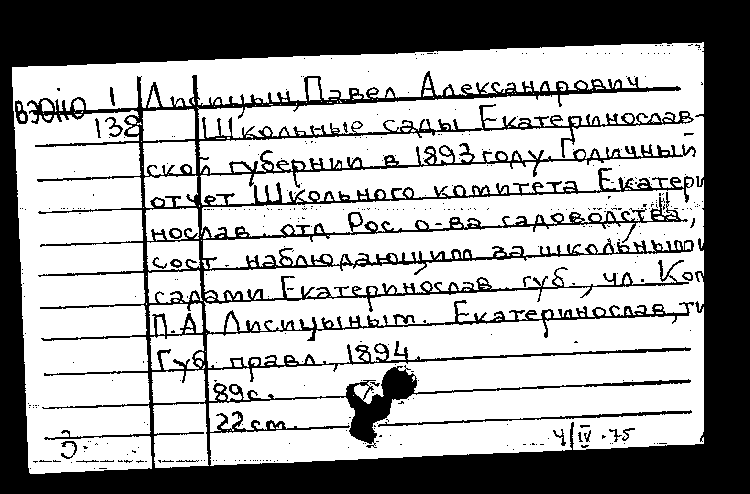 ВЭОИО 1 Лисицын, Павел Александрович
138 Школьные сады Екатеринослав-
ской губернии в 1893 году. Годичный
отчет Школьного комитета Екатери
нослав. отд Рос. о-ва садоводства,
сост. наблюдающим за школьными
садами Екатеринослав. губ., чл. Ком
П.А. Лисицыным. Екатеринослав, ти
Губ. правл., 1894.
89с.
22см.
4/IV-75